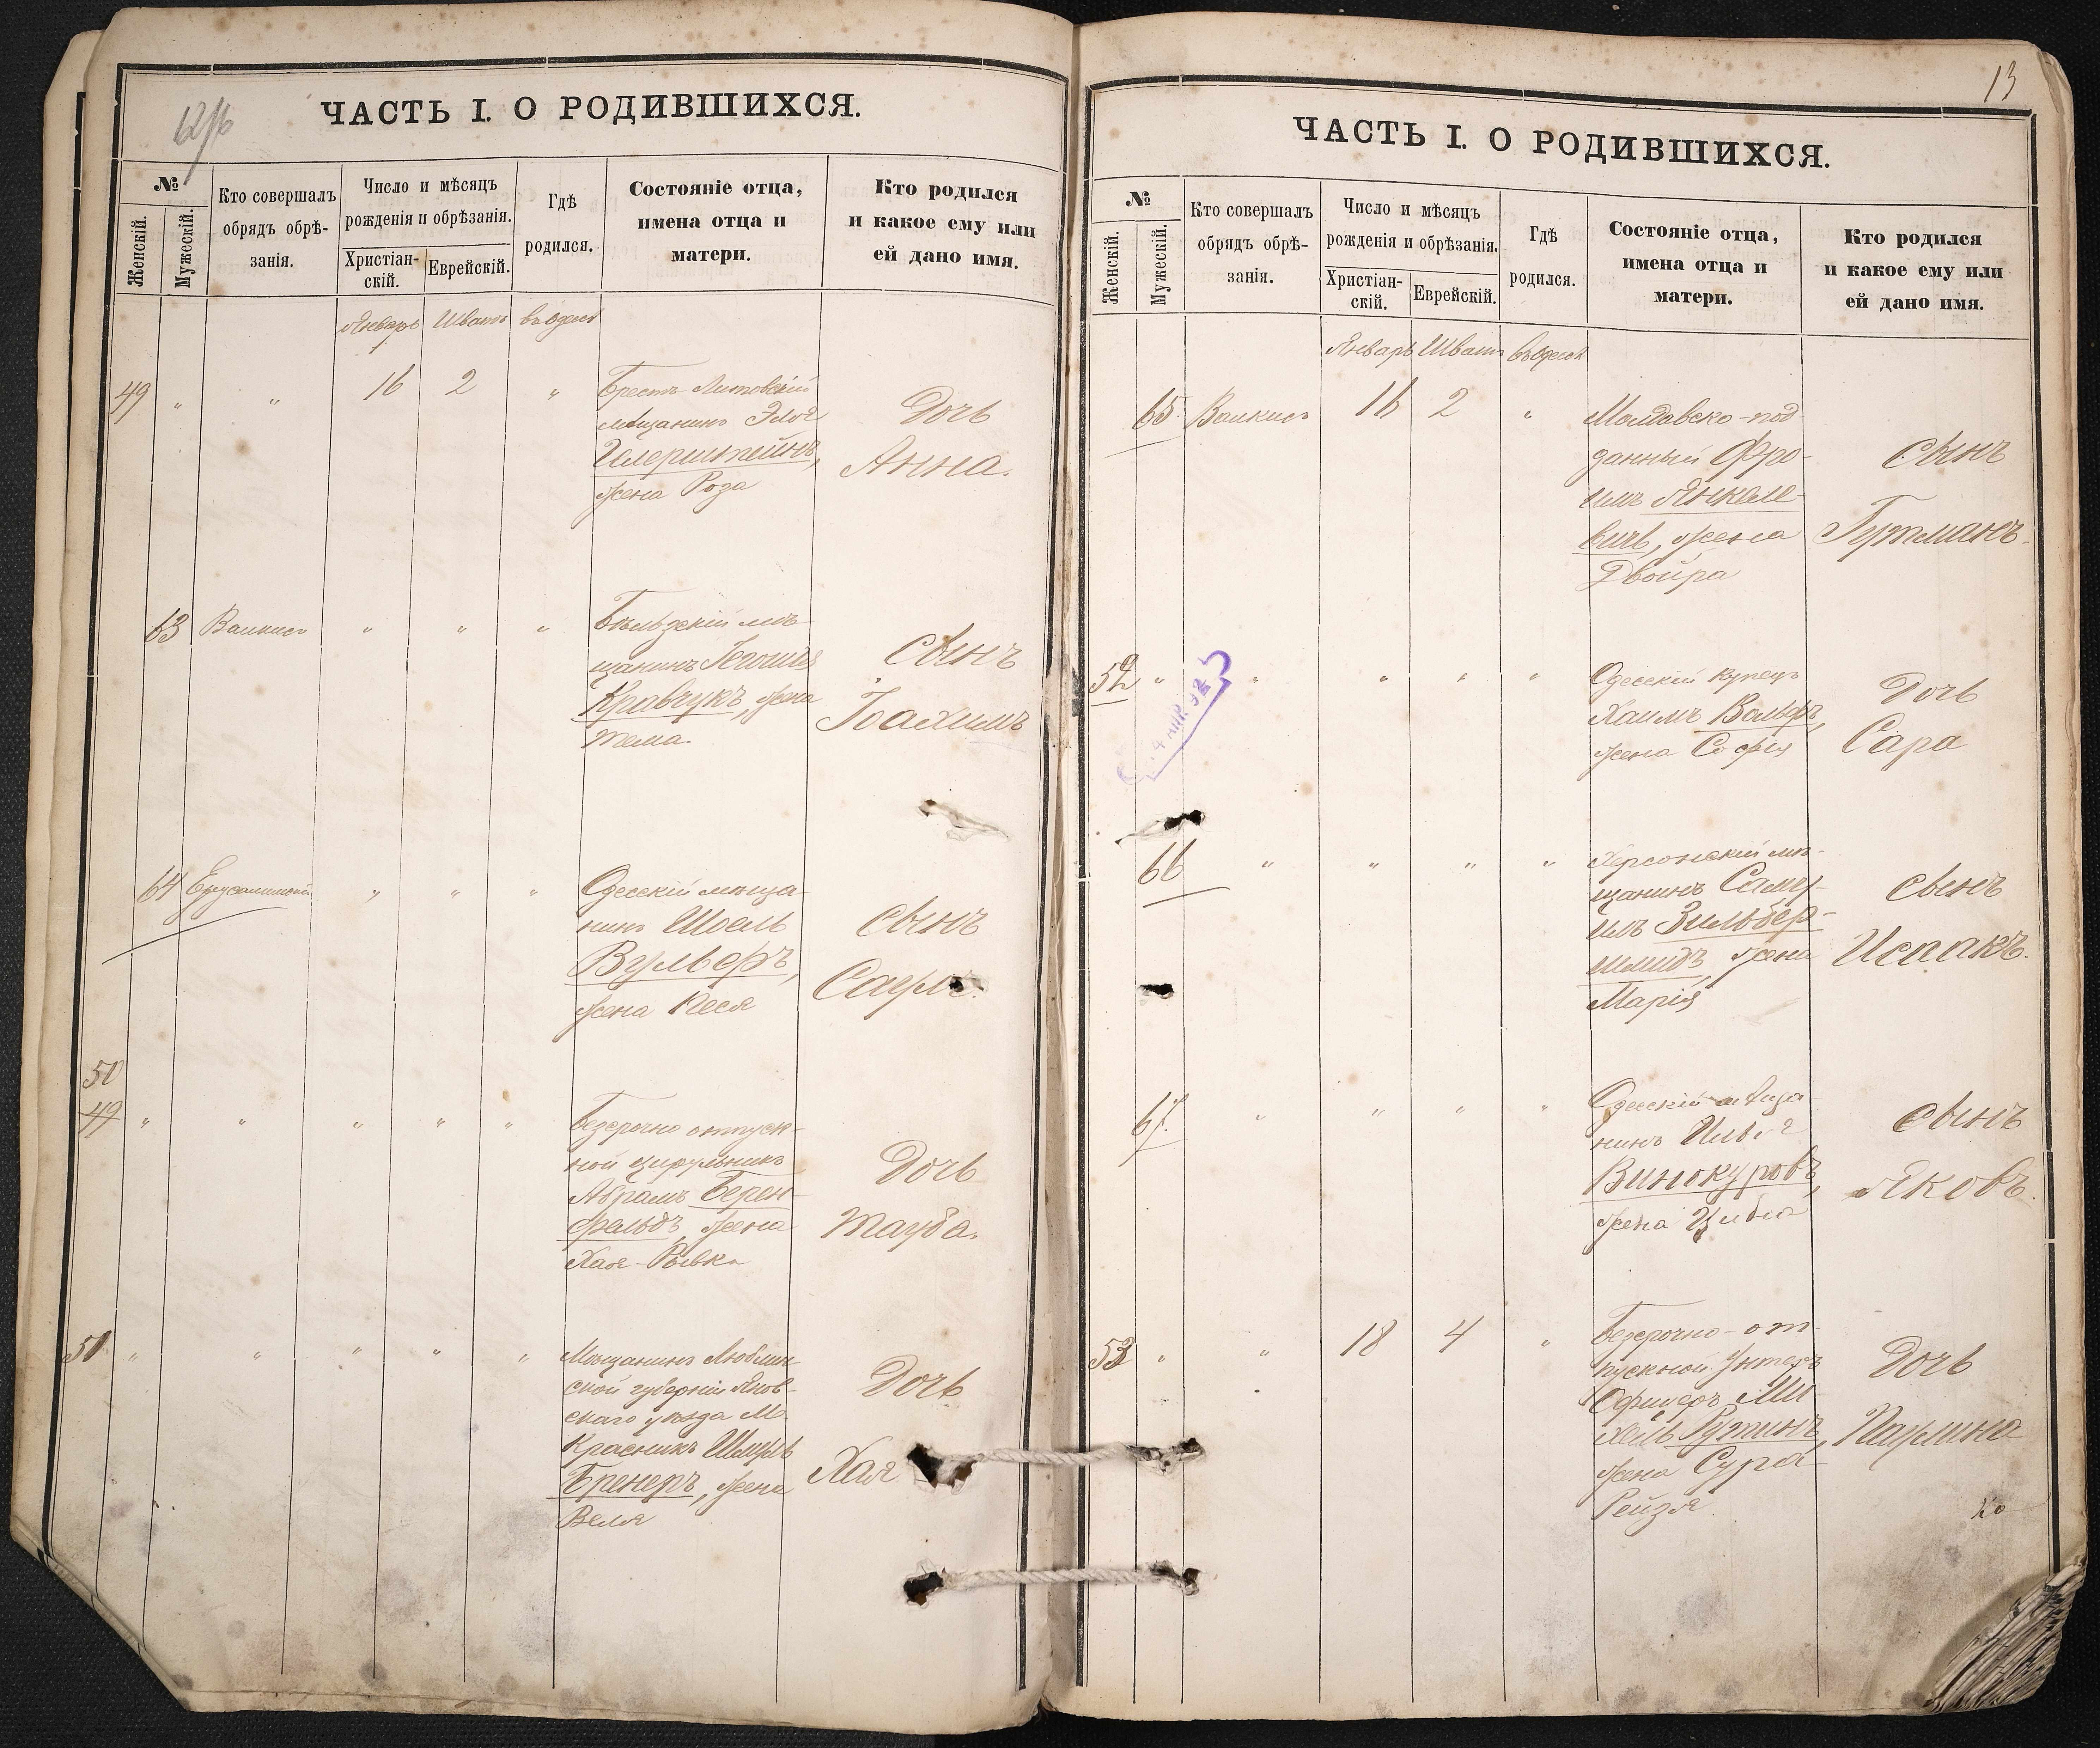 ЧАСТЬ I. О РОДИВШИХСЯ.
№
Женскій.
Мужескій.
Кто совершалъ
обрядъ обрѣ-
занія.
Число и мѣсяцъ
рожденія и обрѣзанія.
Христіан-
скій.
Еврейскій.
Гдѣ
родился.
Состояніе отца,
имена отца и
матери.
Кто родился
и какое ему или
ей дано имя.
Январь Шватъ въ Одессѣ
49 " " 16 2 "
Брестъ Литовскій
мѣщанинъ
Галерштейнъ,
жена Роза
Дочь
Анна.
63 " " "
Бѣльзскій мѣ-
щанинъ
Кравчукъ, жена
Тема.
Сынъ
Іоахимъ
64 Ерусалимскій " " "
Одесскій мѣща-
нинъ Шоель
Вульферъ,
жена Кеся
Сынъ
50
49 " " " " "
Безсрочно отпуск-
ной цирульникъ
Абрамъ Берен-
фельдъ, жена
Хая-Ривка
Дочь
Тауба.
51 " " " " "
Мѣщанинъ Люблин-
ской губерніи Янов-
скаго уѣзда М.
Красникъ
Бренеръ, жена
Веля
Дочь
Хая
13
ЧАСТЬ I. О РОДИВШИХСЯ.
№
Женскій.
Мужескій.
Кто совершалъ
обрядъ обрѣ-
занія.
Число и мѣсяцъ
рожденія и обрѣзанія.
Христіан-
скій.
Еврейскій.
Гдѣ
родился.
Состояніе отца,
имена отца и
матери.
Кто родился
и какое ему или
ей дано имя.
Январь Шватъ въ Одессѣ
65 16 2 "
Молдавско-под
данный Фро-
имъ Янкеле-
вичъ, жена
Двойра
Сынъ
Гутманъ.
52 " " " " "
Одесскій купецъ
Хаимъ Вольфъ,
жена Софія
Дочь
Сара
66 " " " "
Херсонскій мѣ-
щанинъ Саму-
илъ Зильбер-
шмидъ, жена
Марія
Сынъ
Исаакъ.
67. " " " "
Одесскій мѣща
нинъ Илья
Винокуровъ,
жена Цивья
Сынъ
Яковъ.
53 " " 18 4 "
Безсрочно-от-
пускной Унтеръ
Офицеръ Ми-
хель Рутинъ,
жена Сура-
Рейзя.
Дочь
Паулина